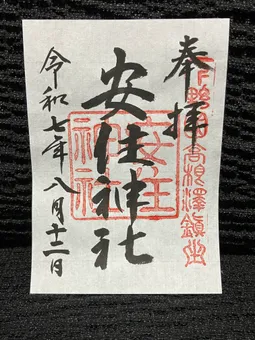 奉拝
下野國高根澤鎮座
安住神社
安住神社
令和七年八月十二日